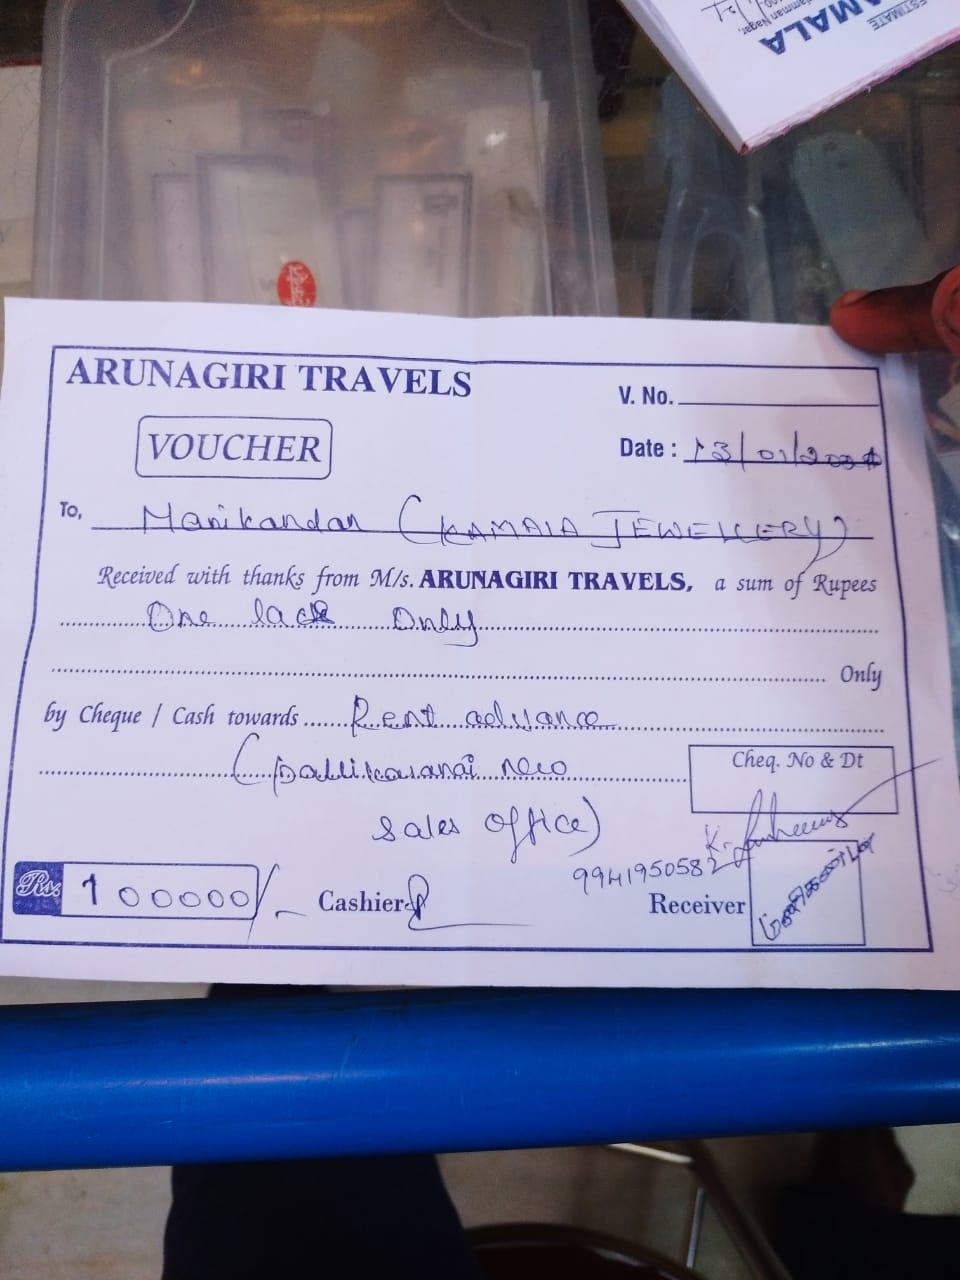 ESTIMATE
AMALA
ARUNAGIRI TRAVELS
V. No.
VOUCHER
Date : 13/01/2021
To, Manikandan (KAMALA JEWELLERY)
Received with thanks from M/s. ARUNAGIRI TRAVELS, a sum of Rupees
One lack Only
Only
by Cheque / Cash towards Rent advance
(pallikaranai new
Cheq. No & Dt
sales office)
9941950582
Rs. 100000/-
Cashier
Receiver